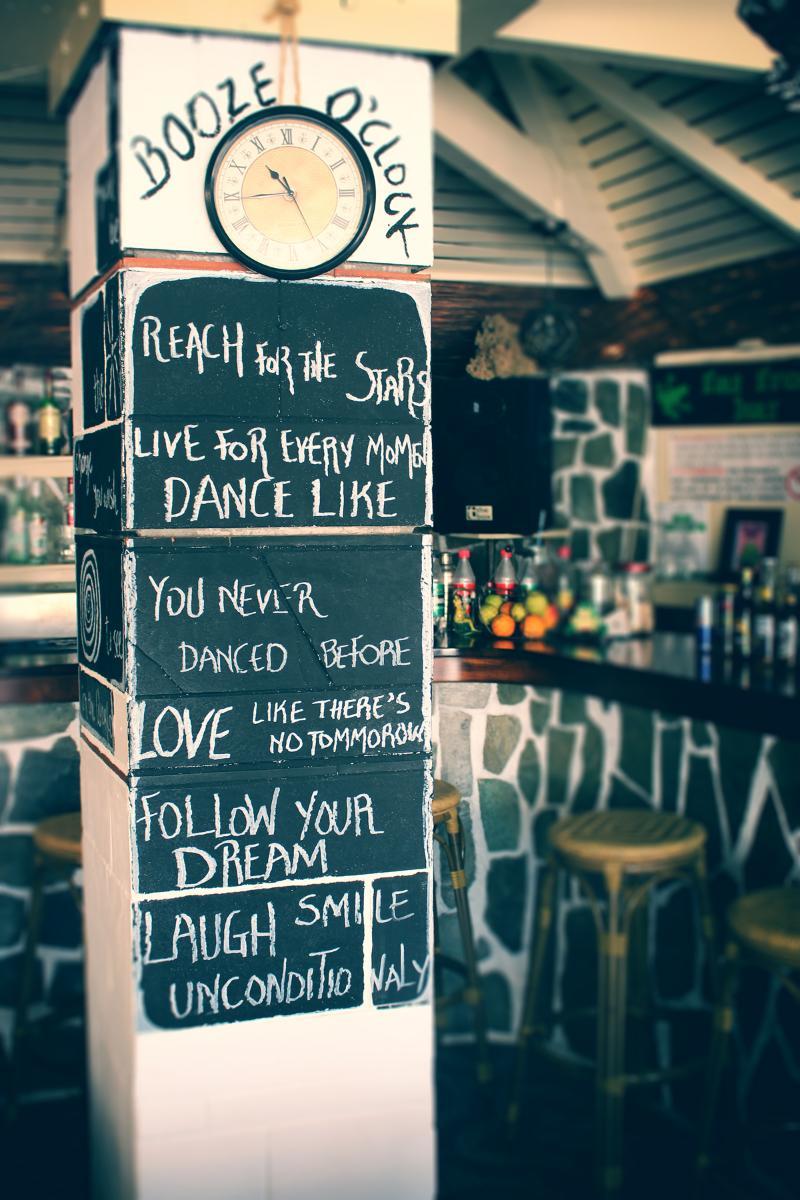 BOOZE O'CLOCK
REACH FOR THE STARS
LIVE FOR EVERY MOMEN
DANCE LIKE
YOU NEVER
DANCED BEFORE
LOVE LIKE THERE'S
NO TOMMOROW
FOLLOW YOUR
DREAM
LAUGH SMILE
UNCONDITIONALY